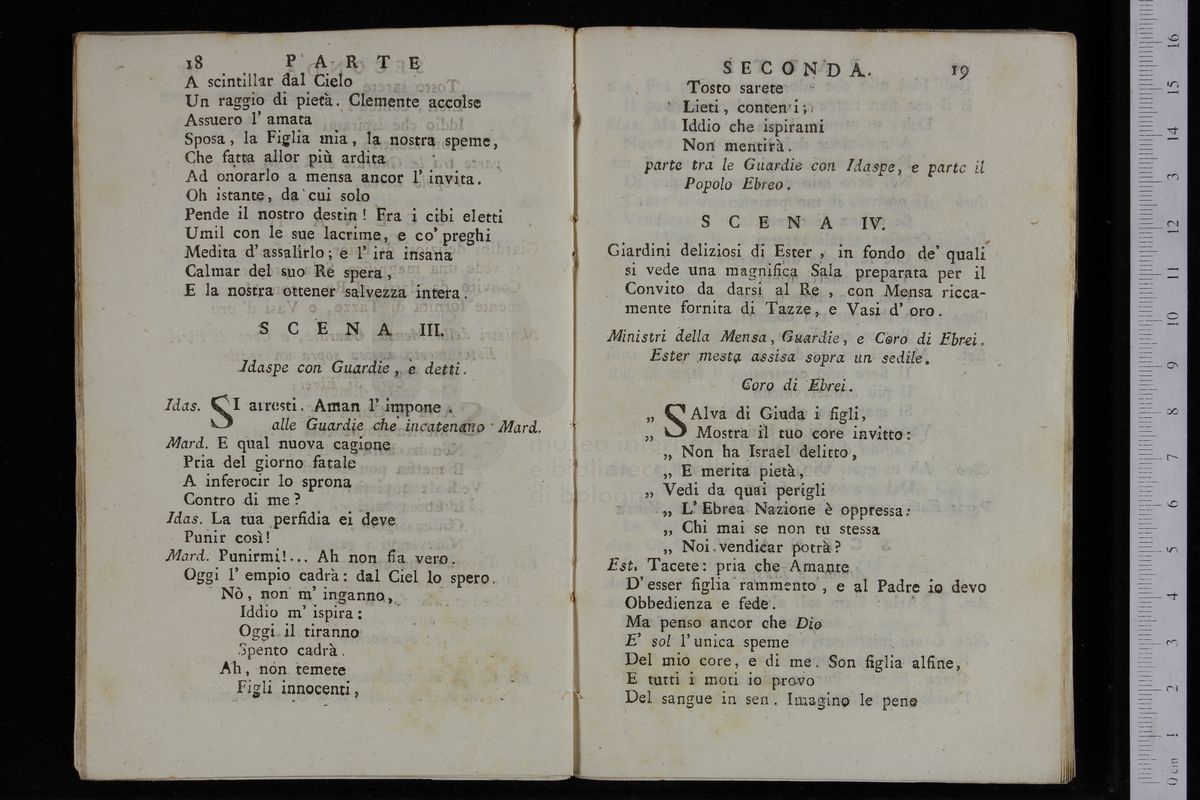 18 PARTE
A scintillar dal Cielo
Un raggio di pietà. Clemente accolse
Assuero l' amata
Sposa, la Figlia mia, la nostra speme,
Che fatta allor più ardita
Ad onorarlo a mensa ancor l' invita.
Oh istante, da cui solo
Pende il nostro destin! Fra i cibi eletti
Umil con le sue lacrime, e co' preghi
Medita d' assalirlo; e l' ira insana
Calmar del suo Re spera,
E la nostra ottener salvezza intera.
SCENA III.
Idaspe con Guardie, e detti.
Idas. SI arresti. Aman l' impone.
alle Guardie che incatenano Mard.
Mard. E qual nuova cagione
Pria del giorno fatale
A inferocir lo sprona
Contro di me?
Idas. La tua perfidia ei deve
Punir così!
Mard. Punirmi!... Ah non fia vero.
Oggi l' empio cadrà: dal Ciel lo spero.
Nò, non m' inganno,
Iddio m' ispira:
Oggi il tiranno
Spento cadrà.
Ah, non temete
Figli innocenti,
SECONDA. 19
Tosto sarete
Lieti, contenti;
Iddio che ispirami
Non mentirà.
parte tra le Guardie con Idaspe, e parte il
Popolo Ebreo.
SCENA IV.
Giardini deliziosi di Ester, in fondo de' quali
si vede una magnifica Sala preparata per il
Convito da darsi al Re, con Mensa ricca-
mente fornita di Tazze, e Vasi d' oro.
Ministri della Mensa, Guardie, e Coro di Ebrei.
Ester mesta assisa sopra un sedile.
Coro di Ebrei.
„ SAlva di Giuda i figli,
„ Mostra il tuo core invitto:
„ Non ha Israel delitto,
„ E merita pietà,
„ Vedi da quai perigli
„ L' Ebrea Nazione è oppressa:
„ Chi mai se non tu stessa
„ Noi vendicar potrà?
Est. Tacete: pria che Amante
D' esser figlia rammento, e al Padre io devo
Obbedienza e fede.
Ma penso ancor che Dio
E' sol l' unica speme
Del mio core, e di me. Son figlia alfine,
E tutti i moti io provo
Del sangue in sen. Imagino le pene